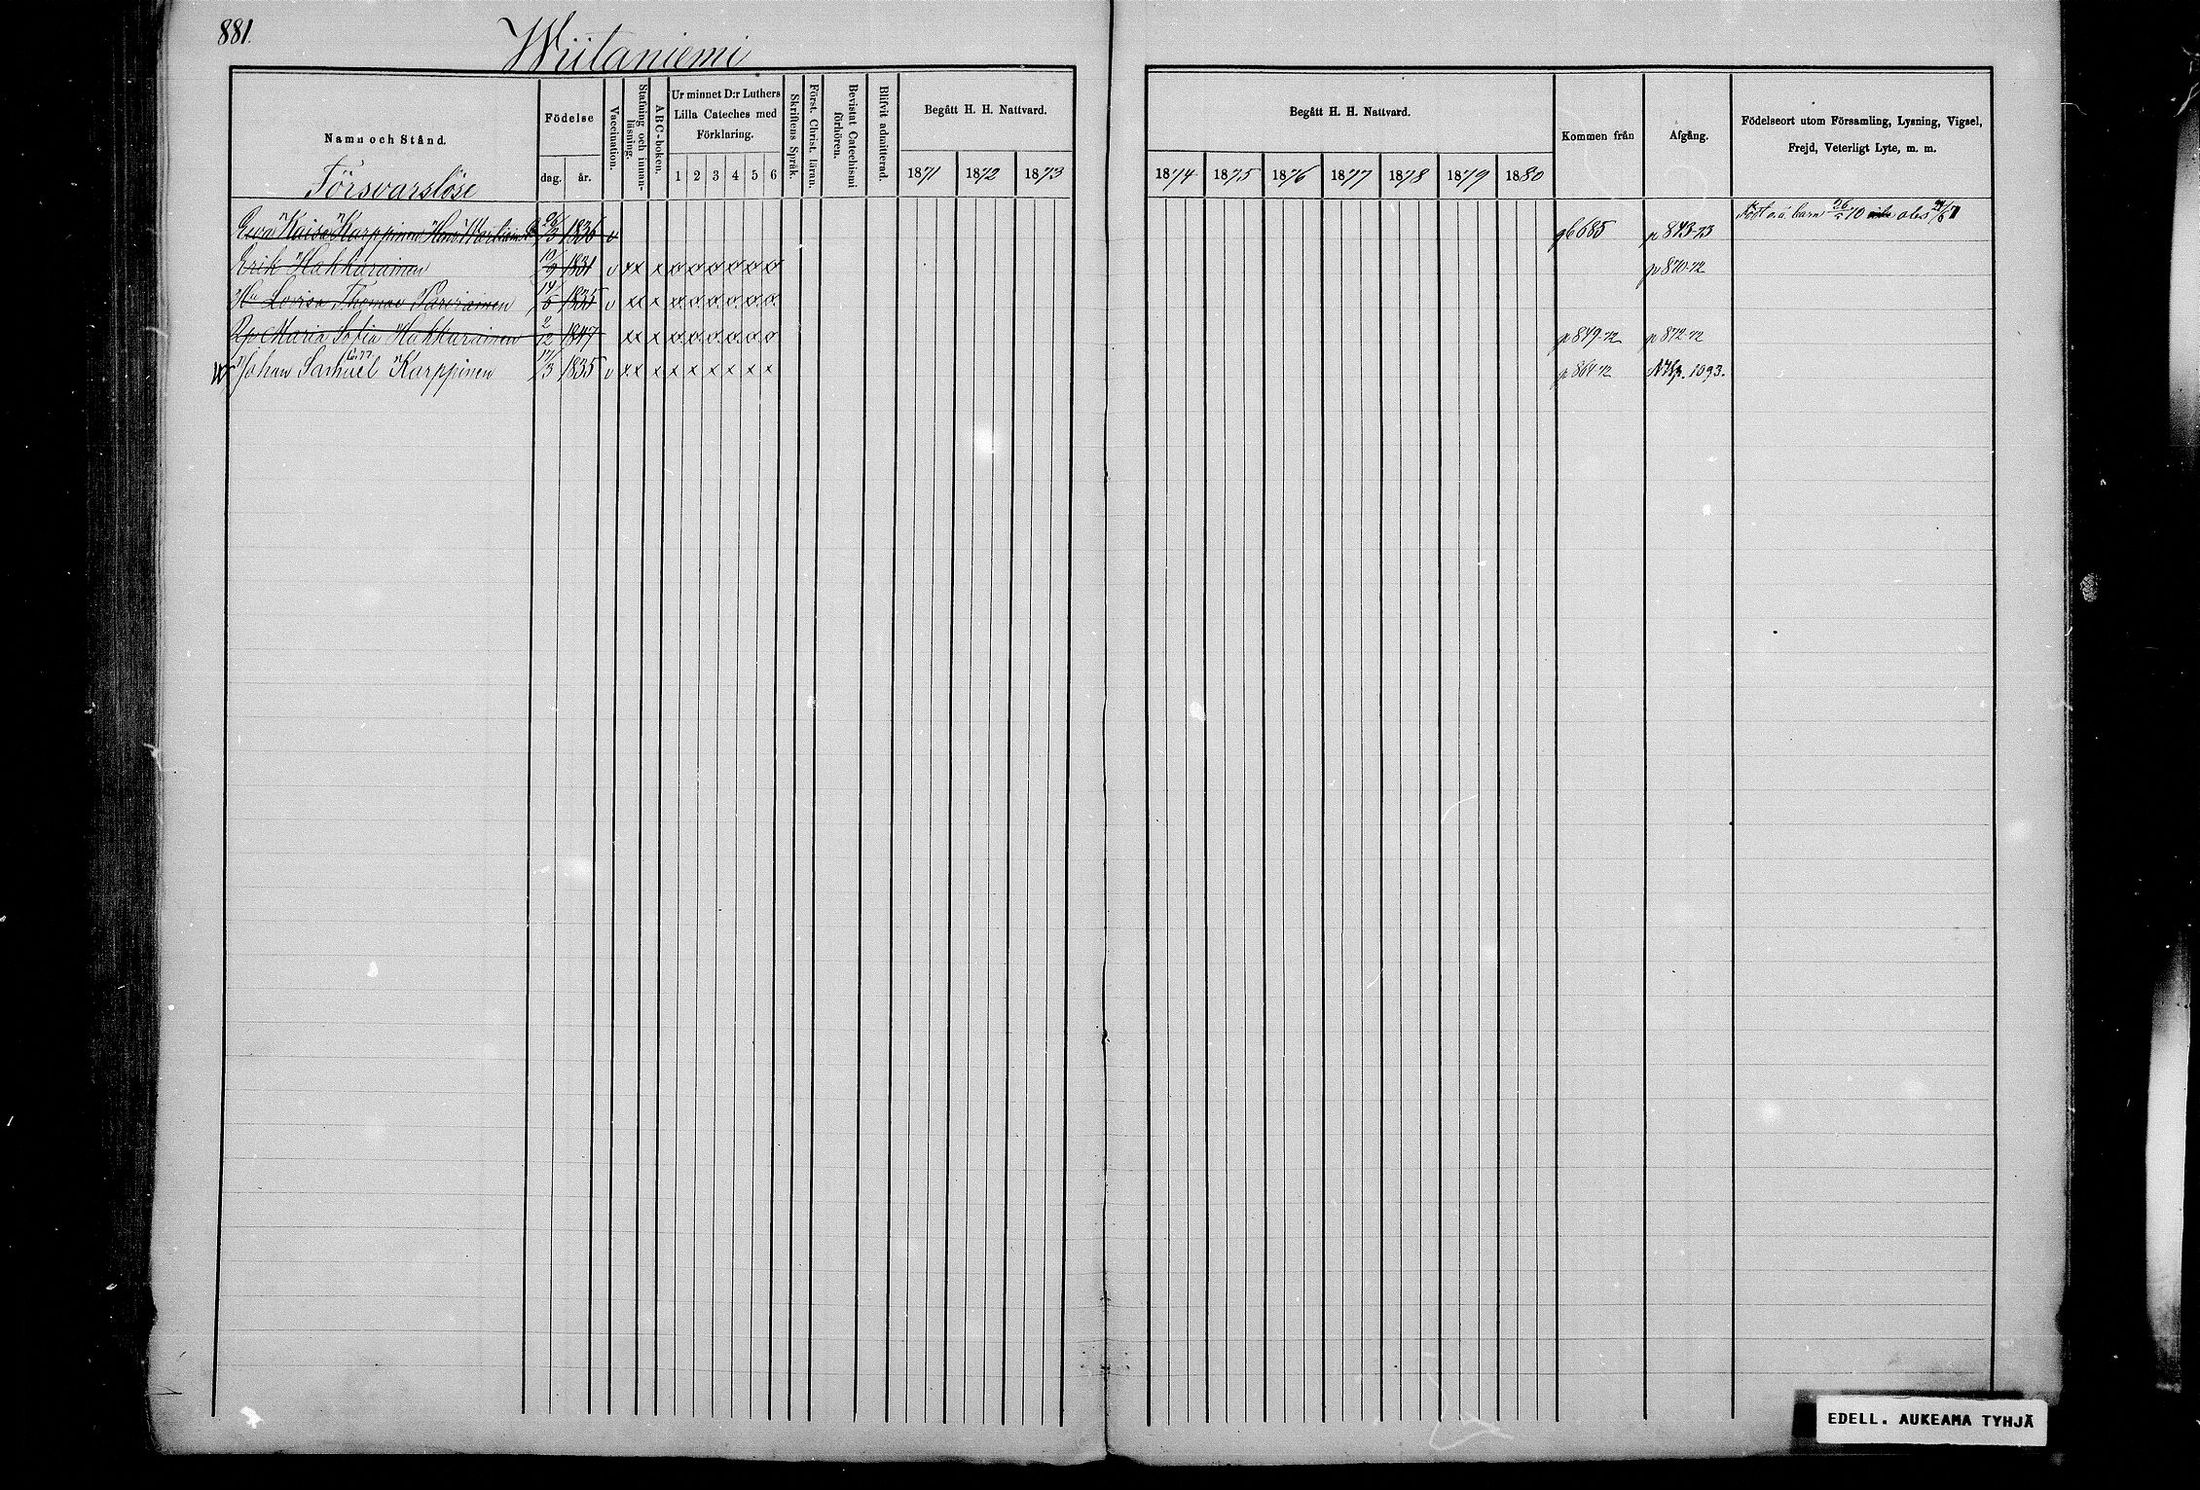 881.
Wiitaniemi
Namn och Stånd.
Försvarslöse
Födelse
dag. år.
Vaccination.
Stafning och innanläsning.
ABC-boken.
Ur minnet D:r Luthers
Lilla Cateches med
Förklaring.
1 2 3 4 5 6
Skriftens Språk.
Först. Christ. läran.
Bevistat Catechismi förhören.
Blifvit admitterad.
Begått H. H. Nattvard.
1871 1872 1873
Begått H. H. Nattvard.
1874 1875 1876 1877 1878 1879 1880
Kommen från
Afgång.
Födelseort utom Församling, Lysning, Vigsel,
Frejd, Veterligt Lyte, m. m.
Ewa Kaisa Karppinen 26/3 1836 v g b 685 p 843-73 Född o. ä. barn 70 abs
Erik Hakkarainen 10/9 1831 v xx x p 870-72
Hu Lovisa Thomae 14/5 1835 v xx x
Maria Sofia Hakkarainen 2/12 1847 xx x p 849-72 p 872-72
Johan Samuel Karppinen 17/3 1835 v xx x x x x x x x p 864-72 N Kp. 1093.
EDELL. AUKEAMA TYHJÄ